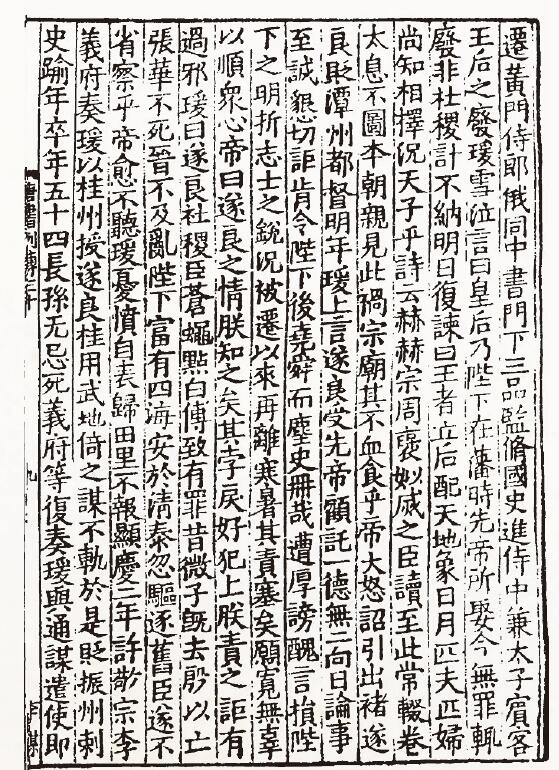 遷黃門侍郎俄同中書門下三品監脩國史進侍中兼太子賓客
王后之廢瑗雪泣言曰皇后乃陛下在藩時先帝所娶今無罪輒
廢非社稷計不納明日復諫曰王者立后配天地象日月匹夫匹婦
尚知相擇況天子乎詩云赫赫宗周襃姒烕之臣讀至此常輟卷
太息不圖本朝親見此禍宗廟其不血食乎帝大怒詔引出褚遂
良貶潭州都督明年瑗上言遂良受先帝顧託一德無二向日論事
至誠懇切詎肯令陛下後堯舜而塵史冊哉遭厚謗醜言損陛
下之明折志士之銳況被遷以來再離寒暑其責塞矣願寬無辜
以順衆心帝曰遂良之情朕知之矣其孛戾好犯上朕責之詎有
過邪瑗曰遂良社稷臣蒼蠅點白傅致有罪昔微子旣去殷以亡
張華不死晉不及亂陛下富有四海安於清泰忽驅逐舊臣遂不
省察乎帝愈不聽瑗憂憤自表歸田里不報顯慶二年許敬宗李
義府奏瑗以桂州授遂良桂用武地倚之謀不軌於是貶振州刺
史踰年卒年五十四長孫无忌死義府等復奏瑗與通謀遣使即
九